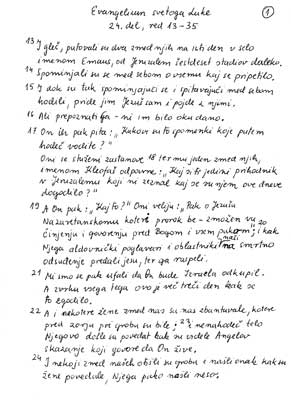 Evangelium svetoga Luke
1
24. del, red 13-35
13 I gleč, putovali su dva zmed njih na isti den v selo
imenom Emaus, od Jeruzalem šestdeset stadiov daleko.
14 Spominjali su se med sobom o vsemu kaj se pripetilo.
15 I dok su tak spominjajuči se i spitavajuči med sobom
hodili, pride jim Jezuš sam i pojde z njimi.
16 Ali prepoznati ga - ni im bilo oku dano.
17 On ih pak pita: "Kakovi su to spomenki koje putem
hodeč vodite?"
Oni se stuženi zastanove 18 ter mu jeden zmed njih,
imenom Kleofaš odpovrne: "Kaj si ti jedini prihodnik
v Jeruzalemu koji ni zeznal kaj se vu njem ove dneve
dogodilo?"
19 A On pak: "Kaj to?" Oni veliju: "Pak o Jezušu
Nazaretanskomu koteri prorok be - zmožen vu
činjenju i govorenju pred Bogom i vsem pukom; 20 i kak
Njega aldovnički poglavari i oblastniki naši na smrtno
odsudenje predali jesu, ter ga raspeli.
21 Mi smo se pak ufali da On bude Izraela odkupil.
A zvrhu vsega tega ovo je već treči den kak se
to zgodilo.
22 A i nekotere žene zmed nas su nas zbantuvale, kotere
pred zorju pri grobu su bile; 23 i nenahodeč telo
Njegovo došle su povedat kak su videle Angelov
skazanje koji govore da On žive.
24 I nekoji zmed naših otišli su grobu i našli onak kak su
žene povedale, Njega pako našli nesu.